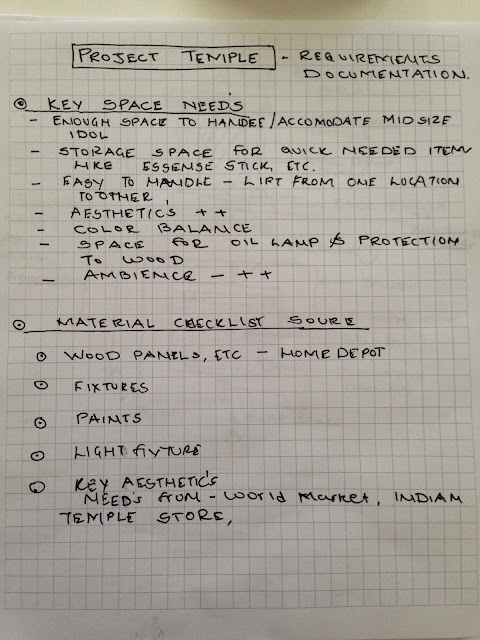 PROJECT TEMPLE - REQUIREMENTS
DOCUMENTATION.
KEY SPACE NEEDS
- ENOUGH SPACE TO HANDEE/ACCOMODATE MIDSIZE
IDOL
- STORAGE SPACE FOR QUICK NEEDED ITEM
LIKE ESSENSE STICK, ETC.
- EASY TO HANDLE - LIFT FROM ONE LOCATION
TO OTHER,
- AESTHETICS ++
- COLOR BALANCE
- SPACE FOR OIL LAMP & PROTECTION
TO WOOD
- AMBIENCE - ++
MATERIAL CHECKLIST SOURE
WOOD PANELS, ETC - HOME DEPOT
FIXTURES
PAINTS
LIGHT FIXTURE
KEY AESTHETIC'S
NEED'S FROM - World Market, INDIAN
TEMPLE STORE,